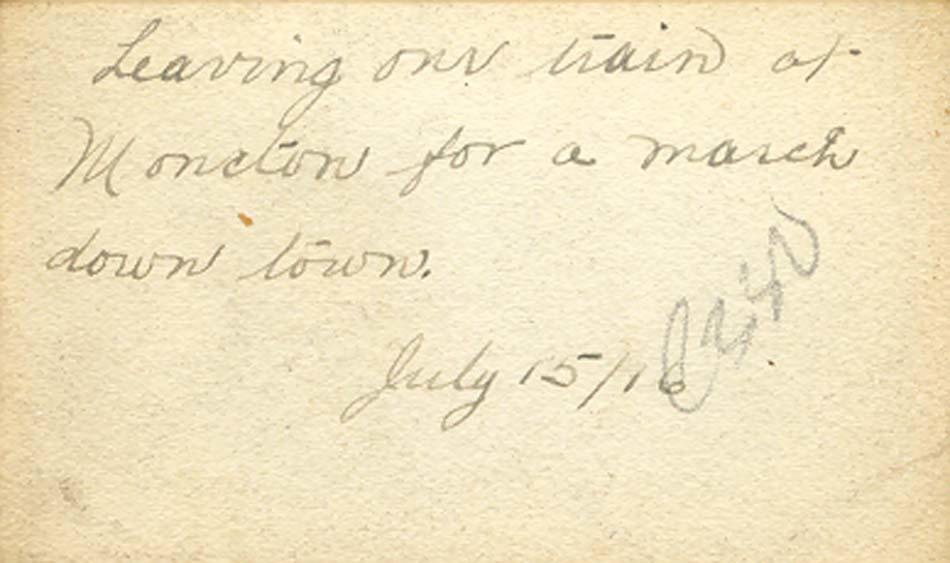 Leaving our train at
Moncton for a march
down town.
July 15/16